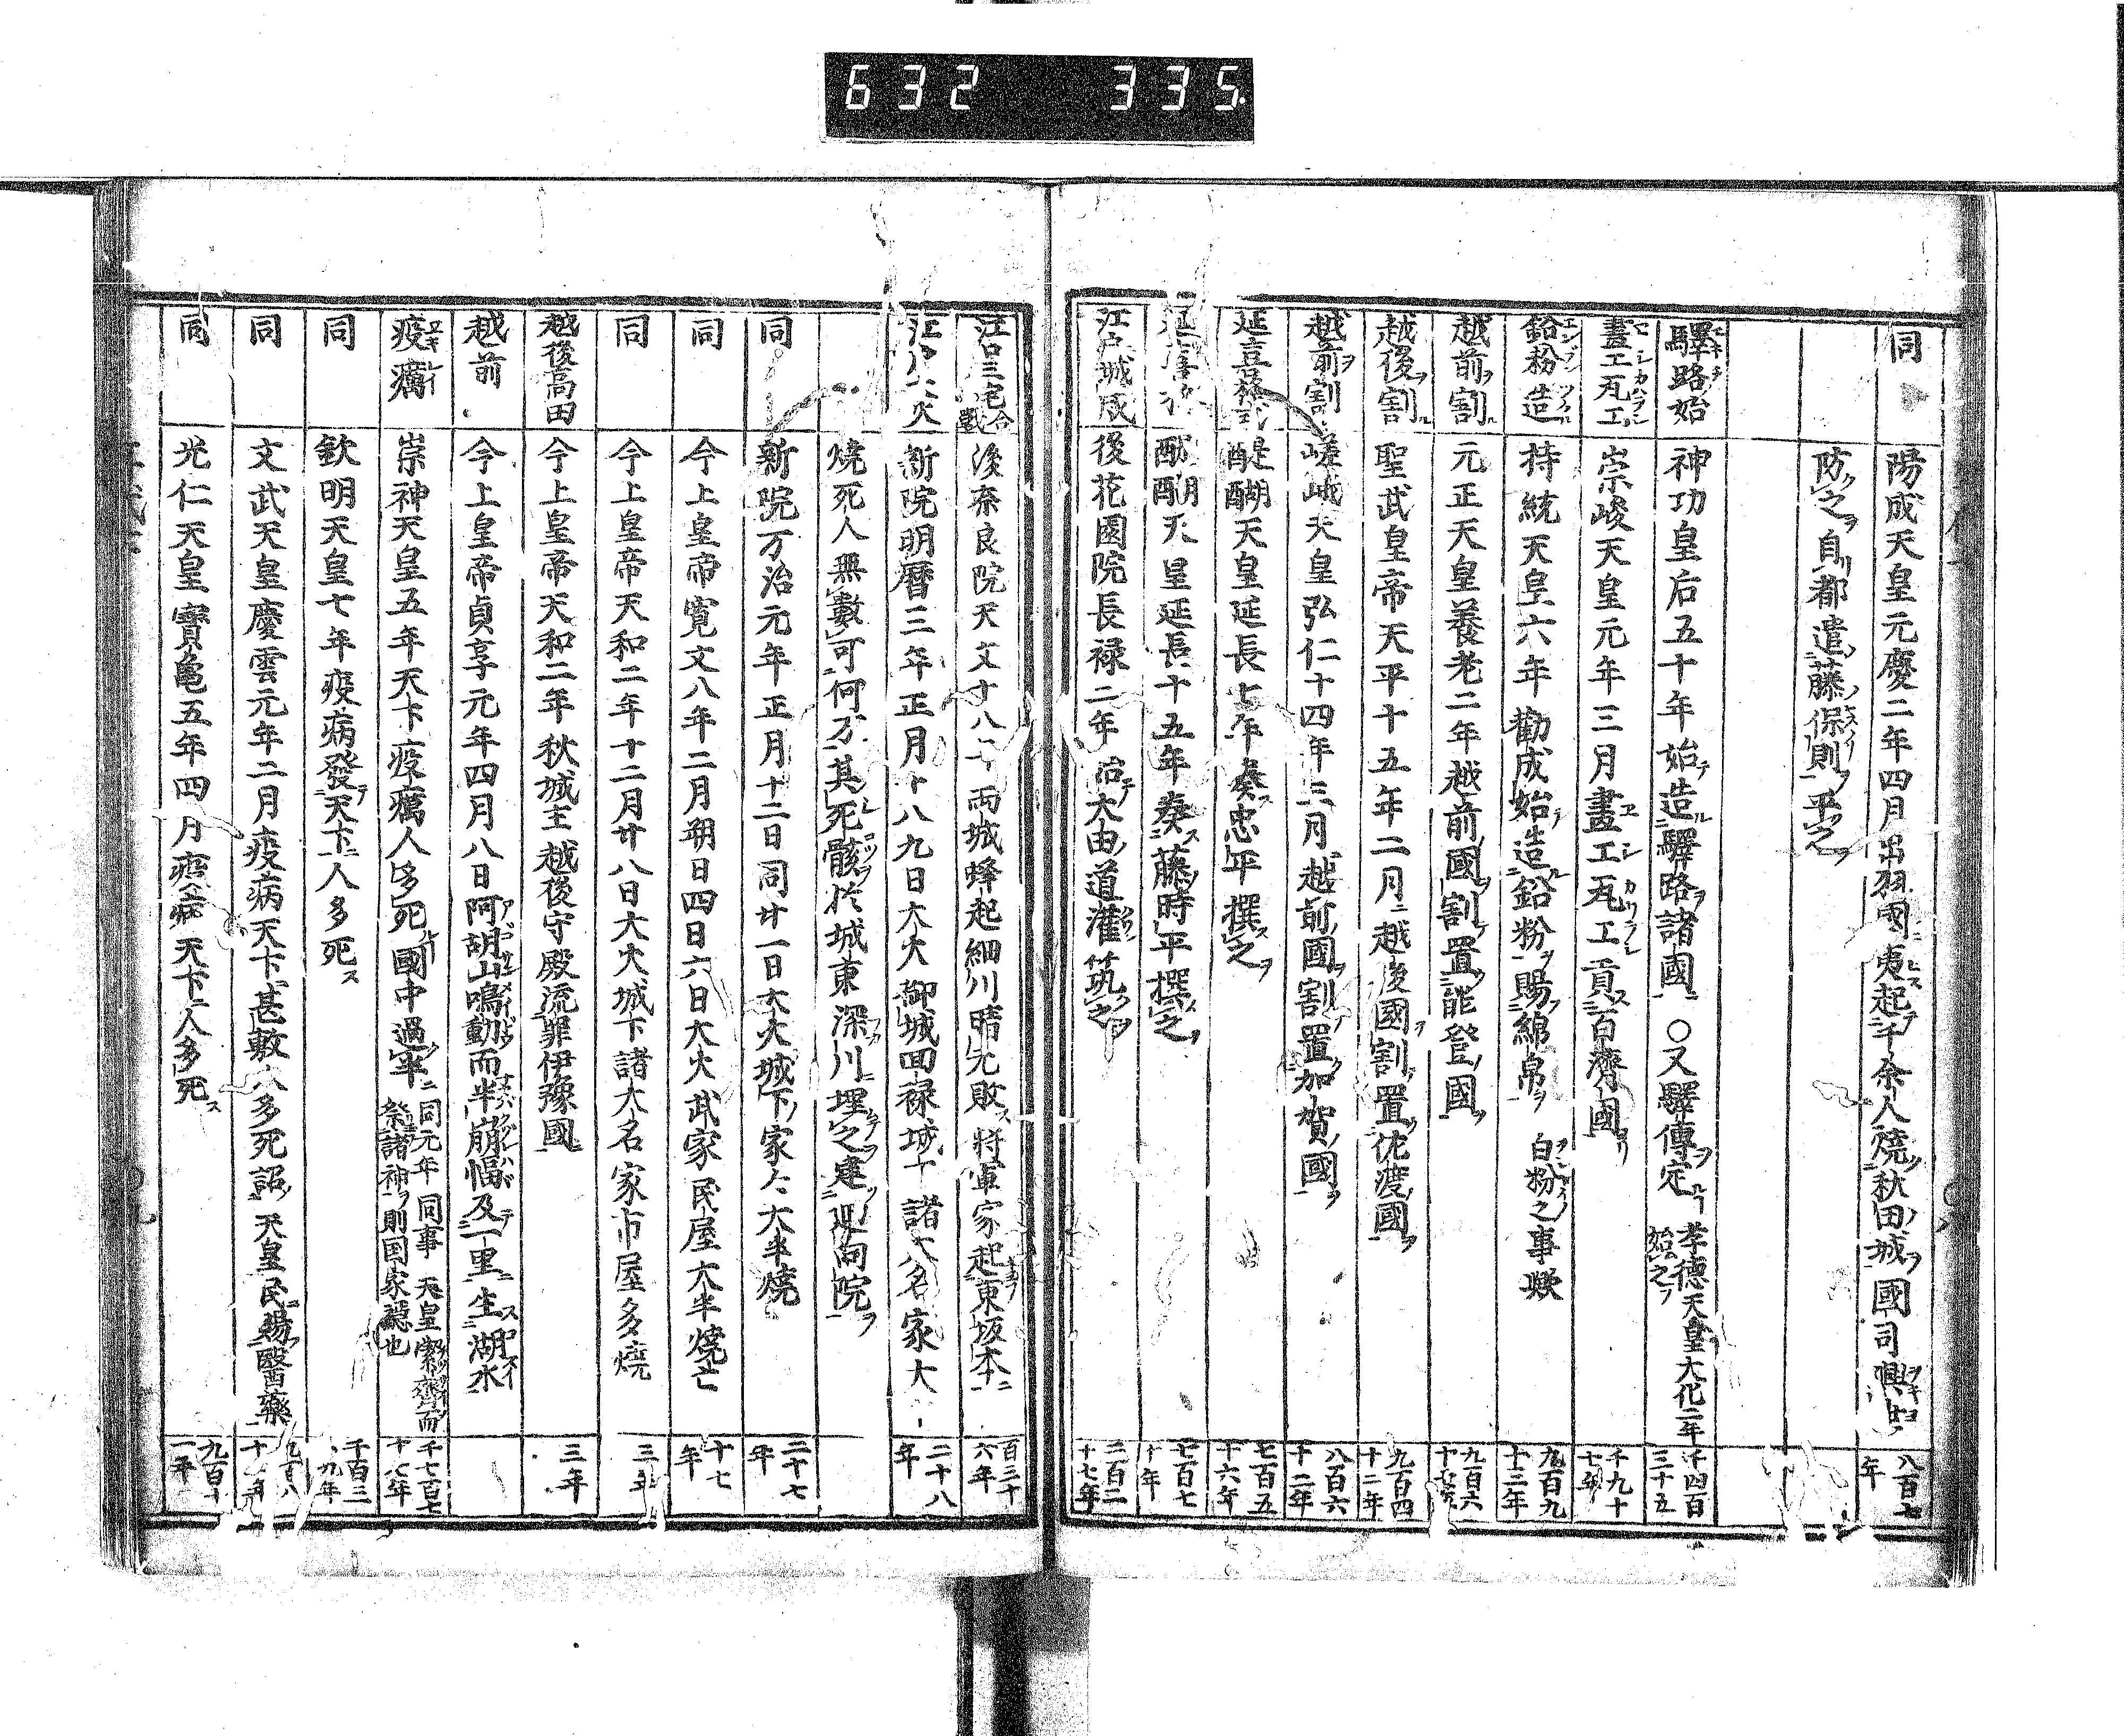 632 335
同 陽成天皇元慶二年四月出羽國夷起千余人燒秋田城國司興世 八百七年
防之自都遣藤保則平之
驛路始 神功皇后五十年始造驛路諸國 〇又驛傳定 孝德天皇大化二年始之 千四百三十五
畫工瓦工 崇峻天皇元年三月畫工瓦工貢百濟國 千九十七年
鉛粉造 持統天皇六年勸成始造鉛粉賜綿帛 白粉之事歟 九百九十三年
越前割 元正天皇養老二年越前國割置能登國 九百六十七年
越後割 聖武皇帝天平十五年二月越後國割置佐渡國 九百四十二年
越前割 嵯峨天皇弘仁十四年三月越前國割置加賀國 八百六十二年
延喜格式 醍醐天皇延長七年奏忠平撰之 七百五十六年
醍醐天皇延長十五年奏藤時平撰之 七百七十年
江戸城成 後花園院長禄二年治大由道灌筑之 二百二十七年
江口三宅合戰 後奈良院天文十八年兩城蜂起細川晴元敗將軍家起東坂本 百三十六年
江戸大火 新院明曆三年正月十八九日大火御城回禄城下諸大名家大 二十八年
燒死人無數可何万其死骸於城東深川埋之建迴向院
同 新院万治元年正月十二日同廿一日大火城下家人大半燒 二十七年
同 今上皇帝寬文八年二月朔日四日六日大火武家民屋大半燒亡 十七年
同 今上皇帝天和二年十二月廿八日大火城下諸大名家市屋多燒 三年
越後高田 今上皇帝天和二年秋城主越後守殿流罪伊豫國 三年
越前 今上皇帝貞享元年四月八日阿胡山鳴動而半崩幅及一里生湖水
疫癘 崇神天皇五年天下疫癘人多死國中過半 同元年同事天皇潔齋而祭諸神則国家穏也 千七百七十八年
同 欽明天皇七年疫病發天下人多死 千百三十九年
同 文武天皇慶雲元年二月疫病天下甚敷人多死詔天皇民賜醫藥
同 光仁天皇寶龜五年四月疫病天下人多死 九百十一年